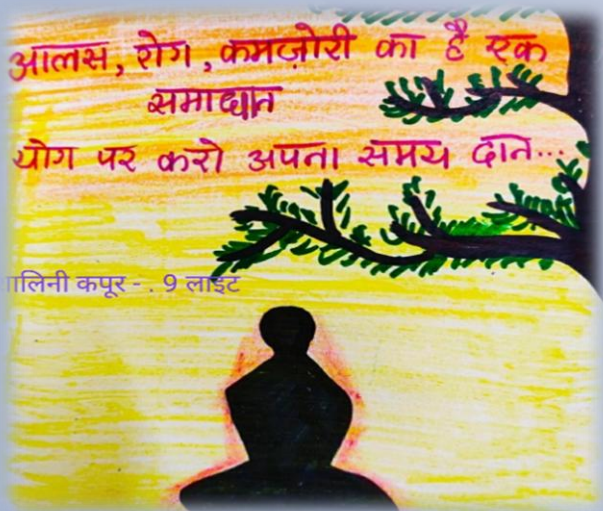 आलस, रोग, कमज़ोरी का है एक
समाधान
योग पर करो अपना समय दान...
कपूर - . 9 लाइट